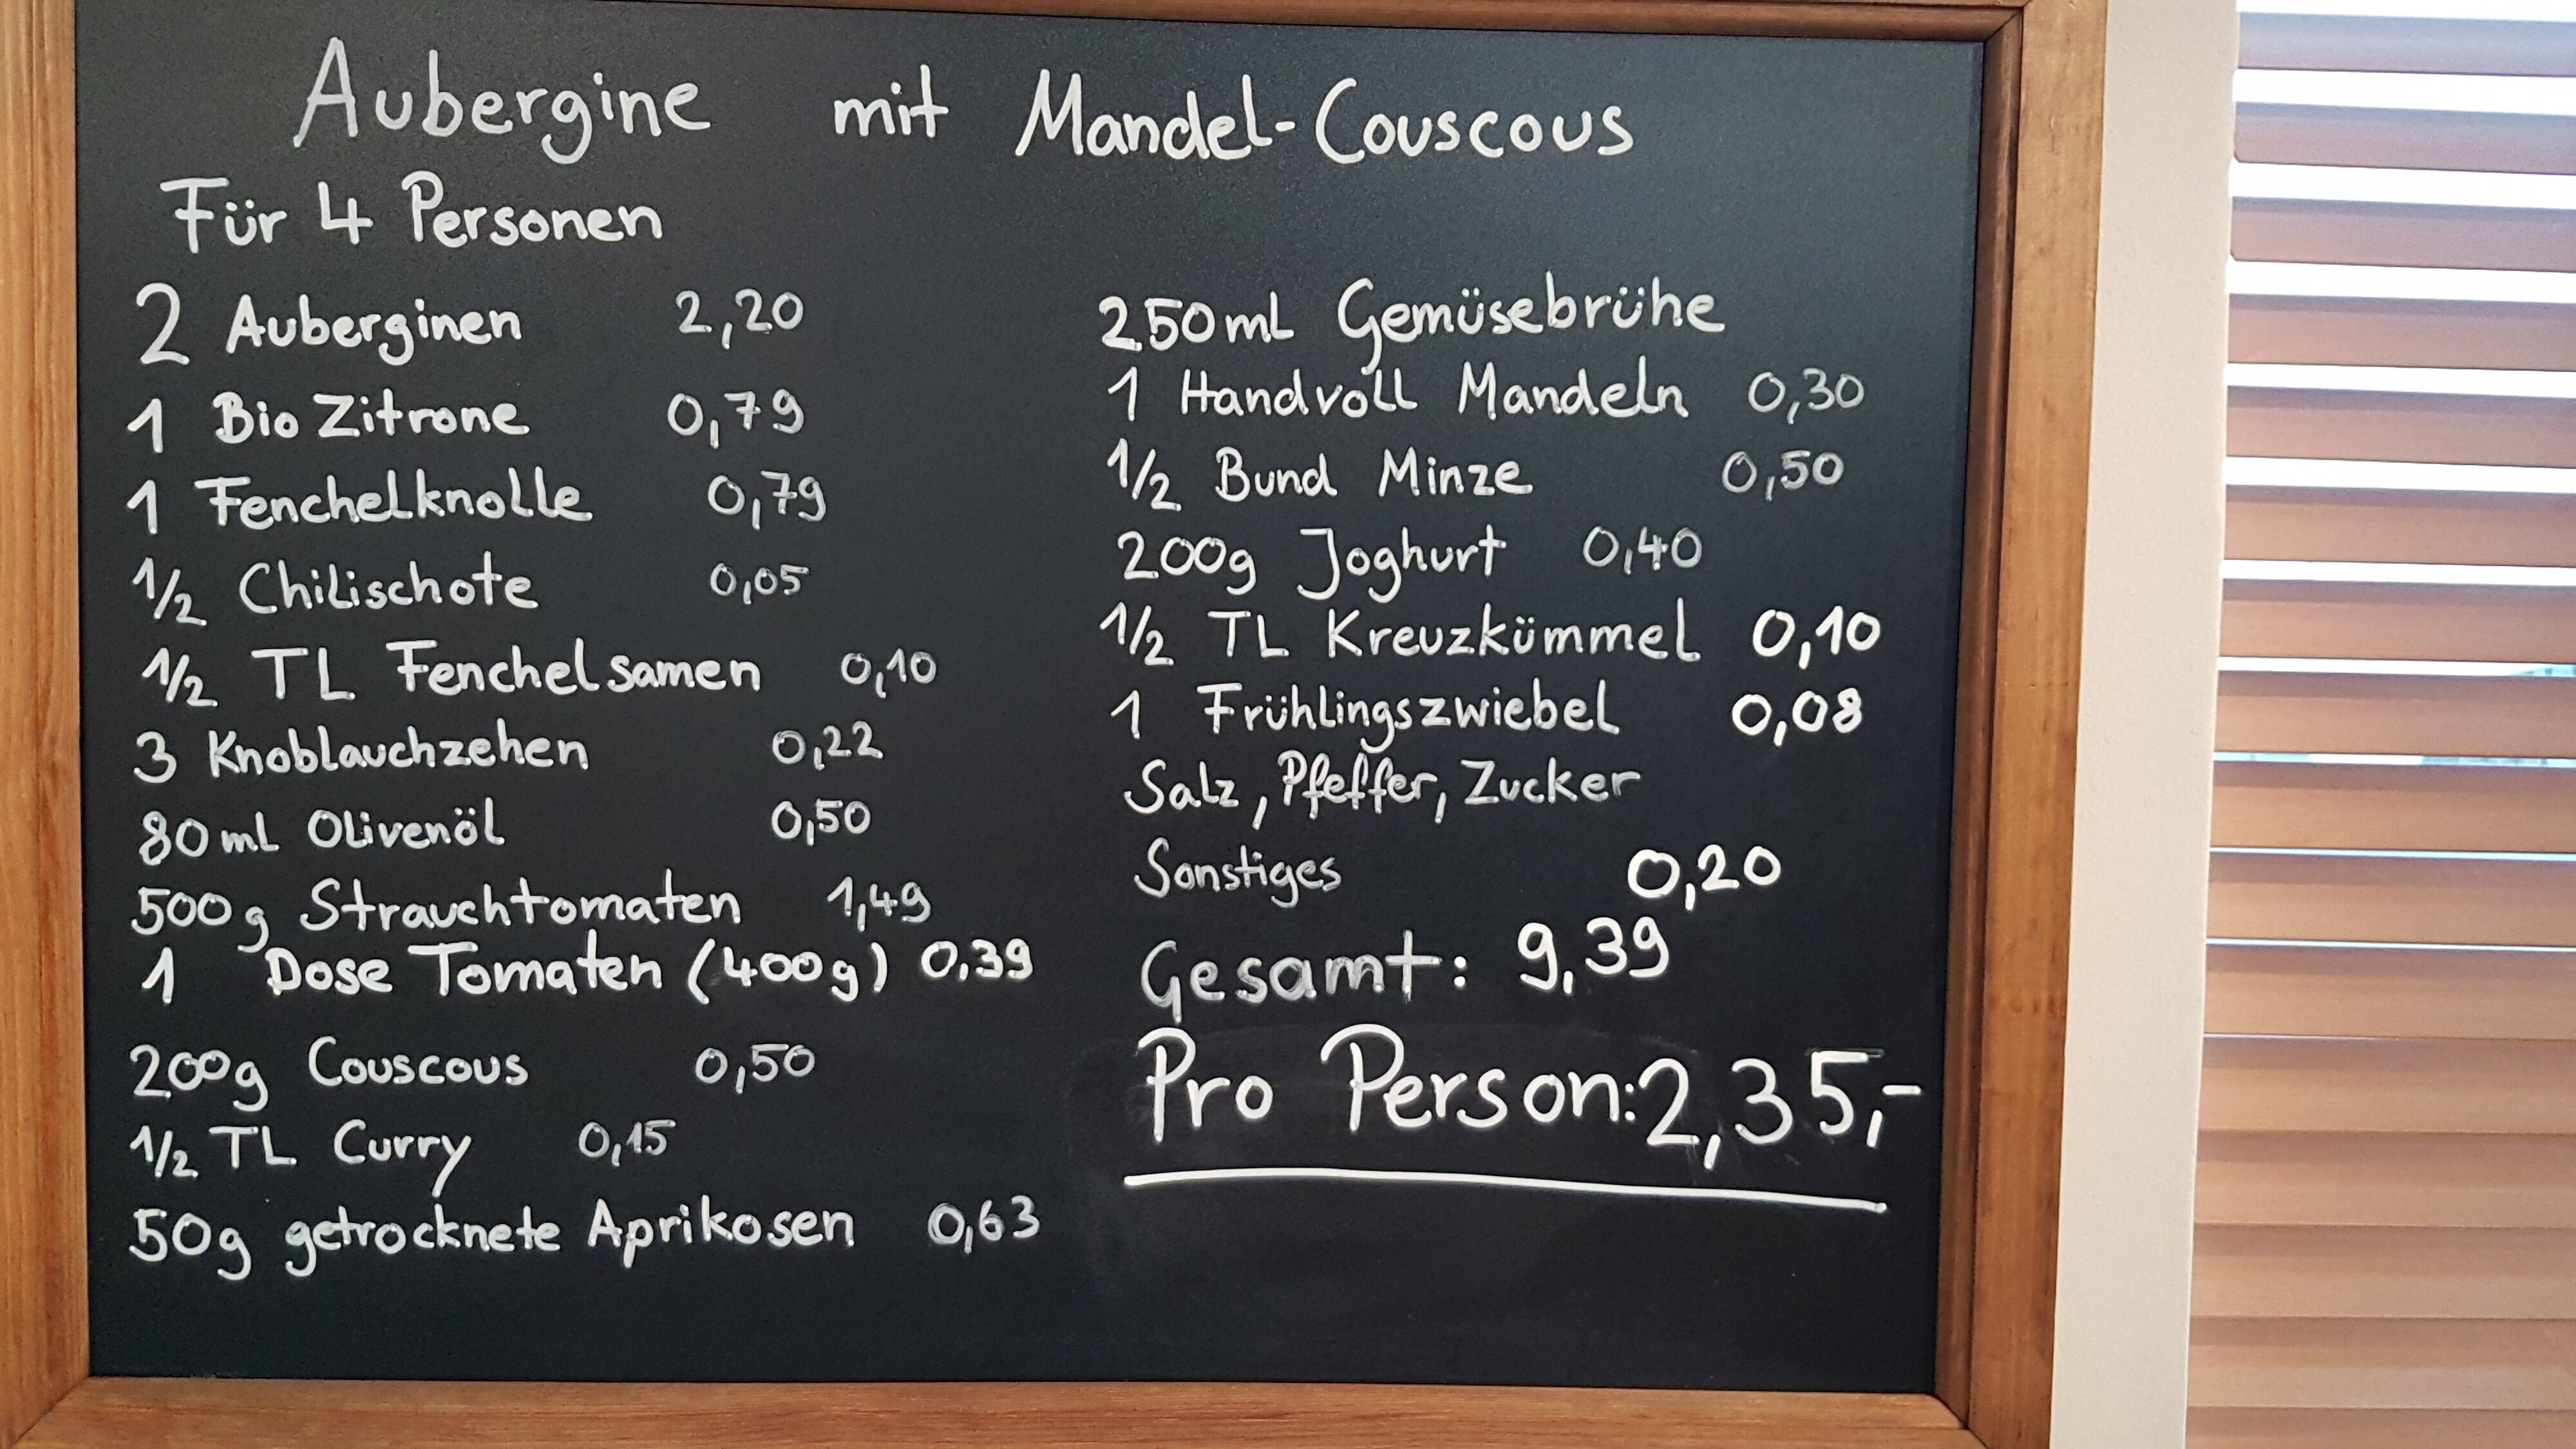 Aubergine mit Mandel-Couscous
Für 4 Personen
2 Auberginen 2,20
1 Bio Zitrone 0,79
1 Fenchelknolle 0,79
1/2 Chilischote 0,05
1/2 TL Fenchelsamen 0,10
3 Knoblauchzehen 0,22
80ml Olivenöl 0,50
500g Strauchtomaten 1,49
1 Dose Tomaten (400g) 0,39
200g Couscous 0,50
1/2 TL Curry 0,15
50g getrocknete Aprikosen 0,63
250ml Gemüsebrühe
1 Handvoll Mandeln 0,30
1/2 Bund Minze 0,50
200g Joghurt 0,40
1/2 TL Kreuzkümmel 0,10
1 Frühlingszwiebel 0,08
Salz, Pfeffer, Zucker
Sonstiges 0,20
Gesamt: 9,39
Pro Person: 2,35,-